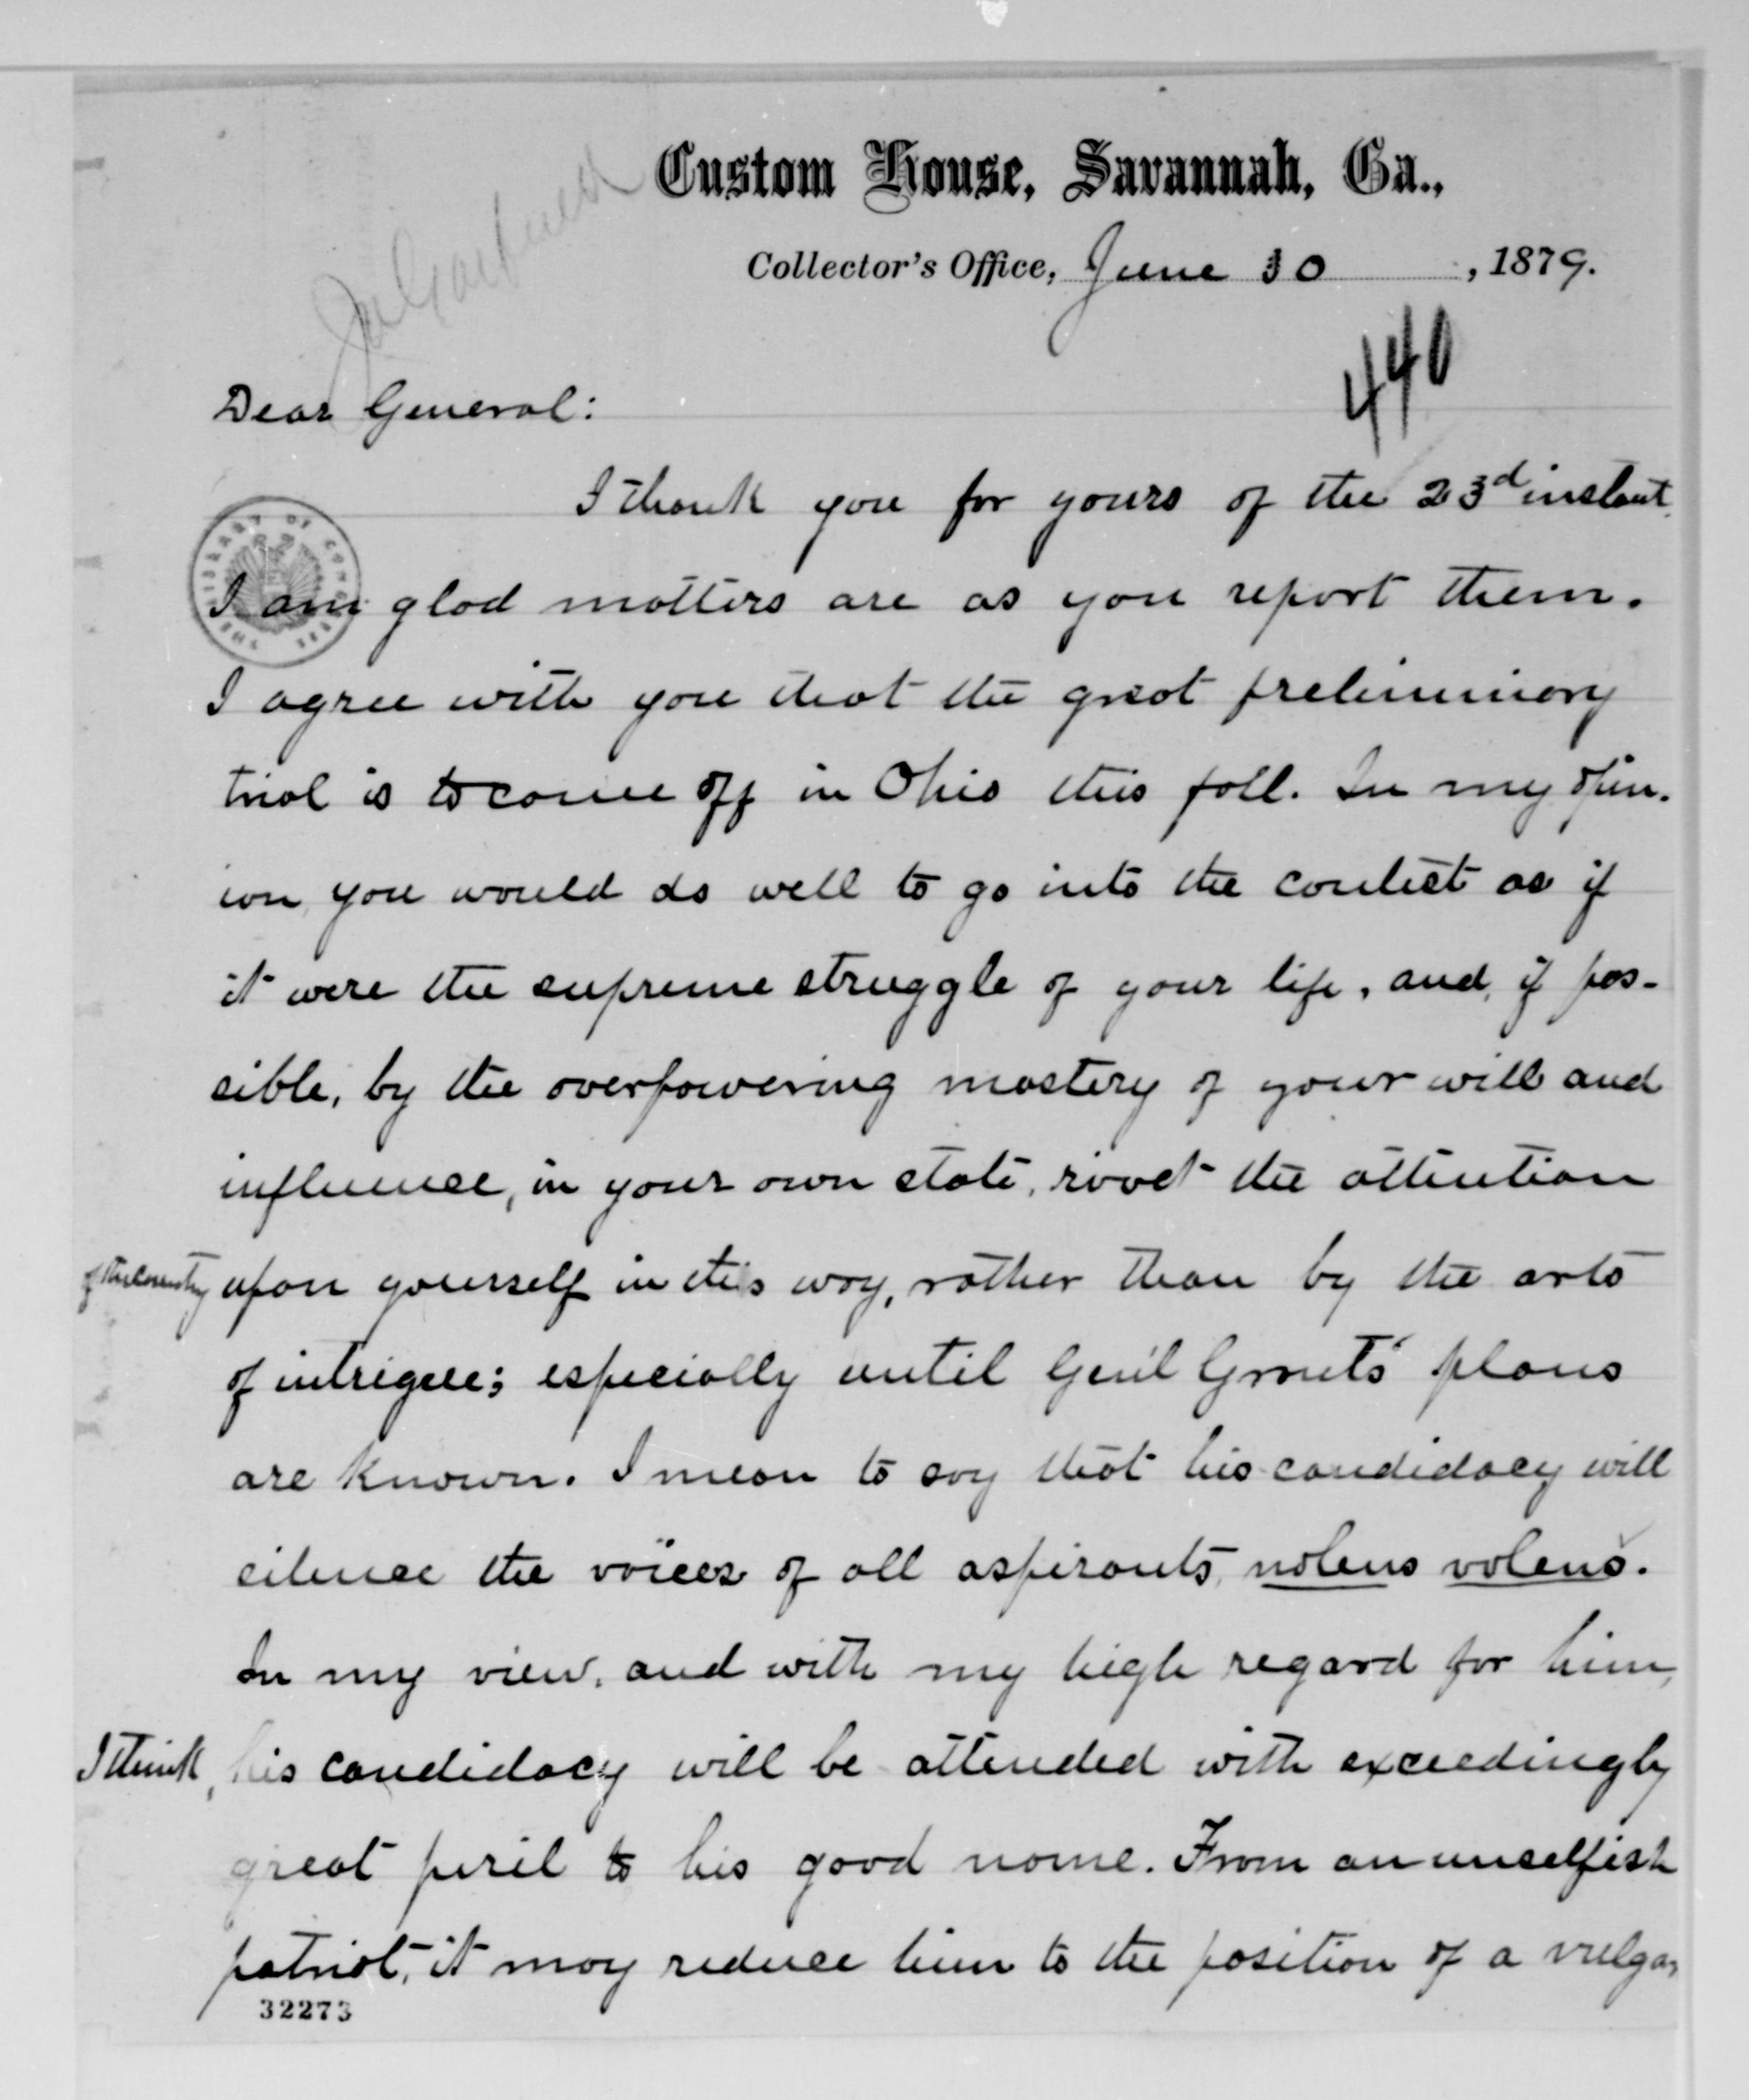 Custom House, Savannah, Ga.,
Collector's Office, June 30, 1879.
440
Dear General:
I thank you for yours of the 23d instant.
I am glad matters are as you report them.
I agree with you that the great preliminary
trial is to come off in Ohio this fall. In my opin-
ion, you would do well to go into the contest as if
it were the supreme struggle of your life, and, if pos-
sible, by the overpowering mastery of your will and
influence, in your own state, rivet the attention
of the country upon yourself in this way, rather than by the arts
of intrigue; especially until Gen'l Grant's plans
are known. I mean to say that his candidacy will
silence the voices of all aspirants, nolens volens.
In my view, and with my high regard for him,
I think, his candidacy will be attended with exceedingly
great peril to his good name. From an unselfish
patriot, it may reduce him to the position of a vulgar
32273